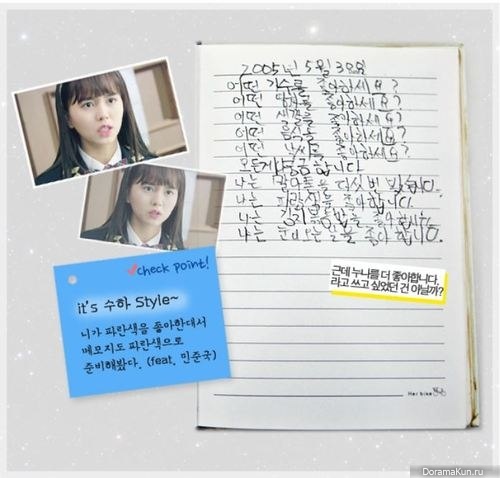 2005년 5월 3일
어떤 가수를 좋아하세요?
어떤 남자를 좋아하세요?
어떤 색깔을 좋아하세요?
어떤 음식을 좋아하세요?
어떤 날씨를 좋아하세요?
모든게 궁금합니다.
나는 파란색을 좋아합니다.
나는 김치볶음밥을 좋아합니다.
나는 눈 오는 날을 좋아합니다.
근데 누나를 더 좋아합니다,
라고 쓰고 싶었던 건 아닐까?
Her bike
check point!
it's 수하 Style~
니가 파란색을 좋아한대서
메모지도 파란색으로
준비해봤다. (feat. 민준국)
DoramaKun.ru